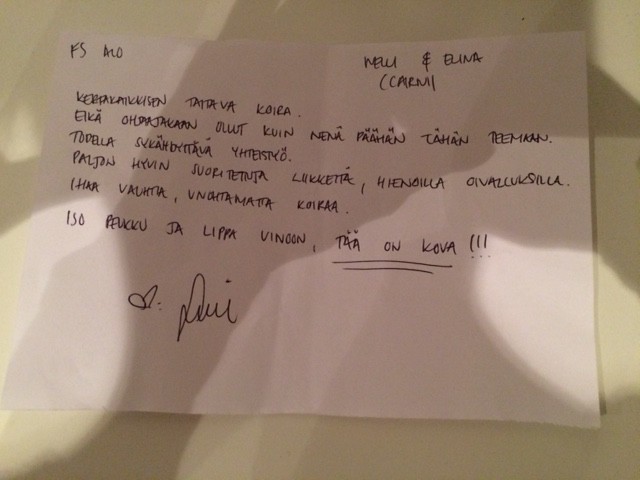 FS ALO
NELLI & ELINA
(CAIRN)
KERRAKAIKKISEN TAITAVA KOIRA.
EIKÄ OHJAAJAKAAN OLLUT KUIN NENÄ PÄÄHÄN TÄHÄN TEEMAAN.
TODELLA SYKÄHDYTTÄVÄ YHTEISTYÖ.
PALJON HYVIN SUORITETTUJA LIIKKEITÄ, HIENOILLA OIVALLUKSILLA.
IHAA VAUHTIA, UNOHTAMATTA KOIRAA.
ISO PEUKKU JA LIPPA VINOON, TÄÄ ON KOVA !!!